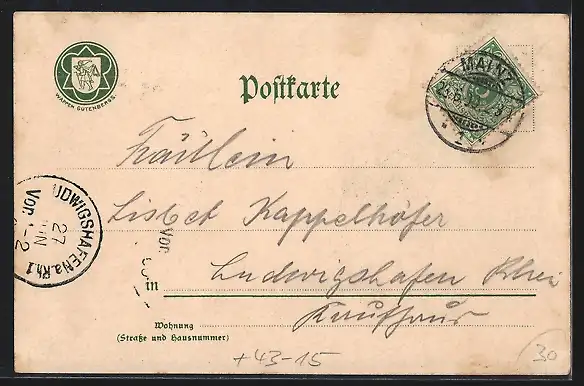 WAPPEN GUTENBERGS
Postkarte
MAINZ
Fräulein
Lisbet Kappelhöfer
LUDWIGSHAFEN a. Rh. 1
27
Vor.
Vor.
in
Ludwigshafen Rhei
Wohnung
(Straße und Hausnummer)
+43-15
30